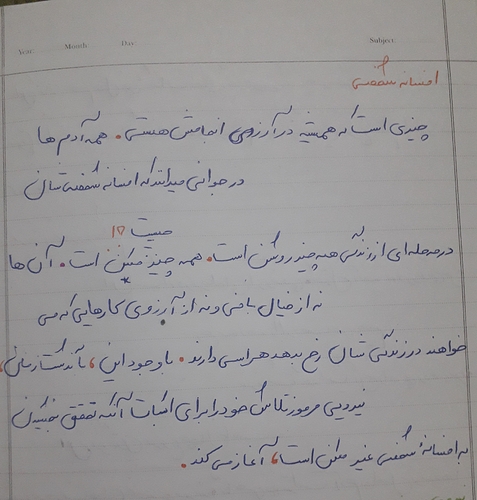 Year: Month: Day: Subject:
افسانه شخصی
چیزی است که همیشه در آرزوی انجامش هستی. همه آدم ها
در جوانی میدانند که افسانه شخصی شان
چیست ۱۵
در مرحله‌ای از زندگی همه چیز روشن است. همه چیز ممکن است. آن ها
نه از خیال بافی و نه از آرزوی کارهایی که می
خواهند در زندگی شان رخ بدهد هراسی دارند. با وجود این، با گذشت زمان،
نیرویی مرموز تلاش خود را برای اثبات آنکه تحقق بخشیدن
به افسانهٔ شخصی غیر ممکن است، آغاز می کند.